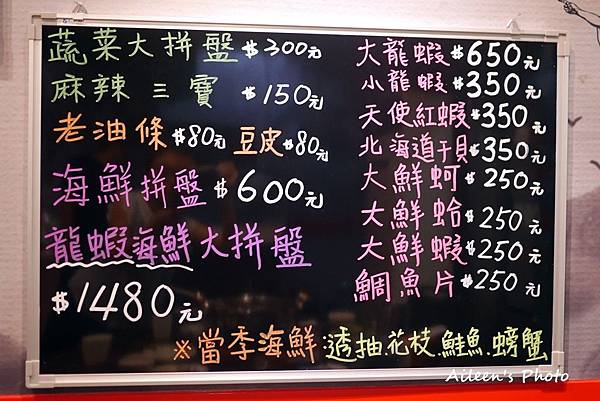 蔬菜大拼盤 $300元
麻辣三寶 $150元
老油條 $80元 豆皮 $80元
海鮮拼盤 $600元
龍蝦海鮮大拼盤
$1480元
大龍蝦 $650元
小龍蝦 $350元
天使紅蝦 $350元
北海道干貝 $350元
大鮮蚵 $250元
大鮮蛤 $250元
大鮮蝦 $250元
鯛魚片 $250元
※當季海鮮:透抽.花枝.鮭魚.螃蟹
Aileen's Photo